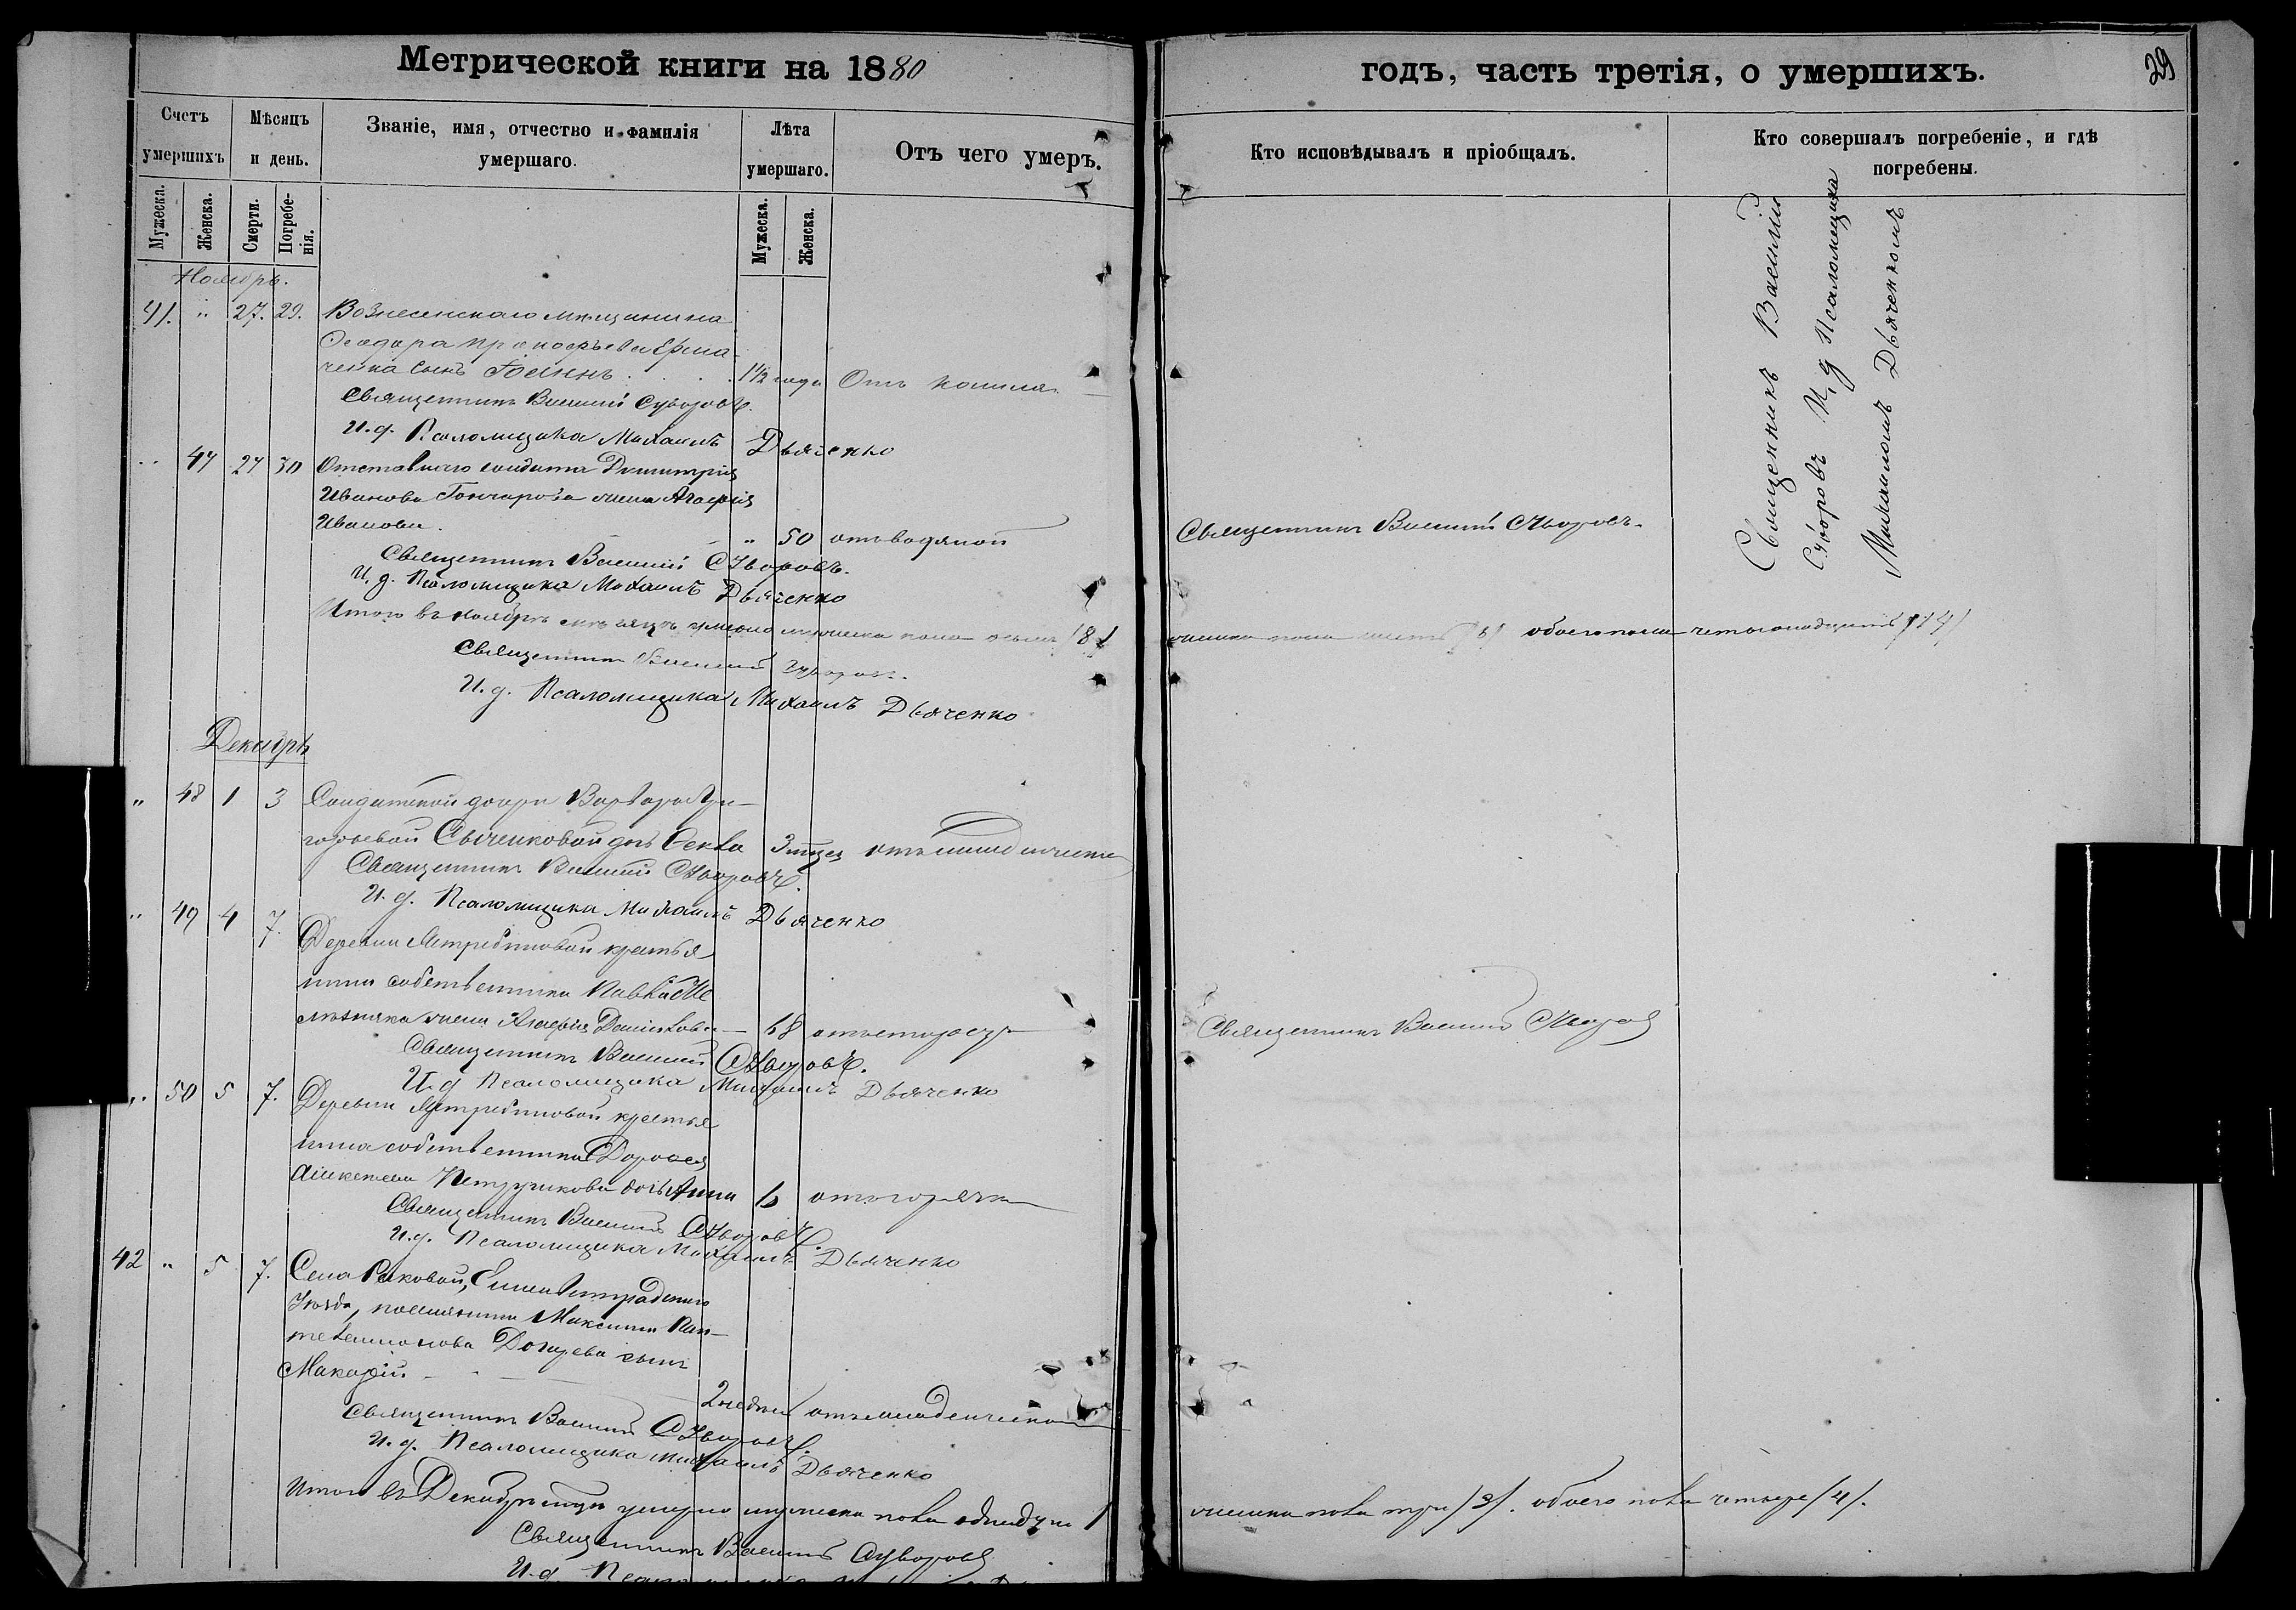 Метрической книги на 1880
годъ, часть третія, о умершихъ.
29
Счетъ умершихъ
Мѣсяцъ и день.
Званіе, имя, отчество и фамилія умершаго.
Лѣта умершаго.
Отъ чего умеръ.
Кто исповѣдывалъ и пріобщалъ.
Кто совершалъ погребеніе, и гдѣ погребены.
Мужеска.
Женска.
Смерти.
Погребенія.
Мужеска.
Женска.
Ноябрь.
41. " 27. 29. Вознесенскаго мѣщанина
Ѳеодора Прокофьева
сынъ Іоаннъ 1 1/2 года Отъ кашля
Священникъ Василій Суворовъ.
И. д. Псаломщика Михаилъ Дьяченко
" 47 27 30 Отставнаго солдата Димитрія
Иванова Гончарова жена Агафія
Иванова. " 50 отъ водяной
Священникъ Василій Суворовъ.
Священникъ Василій Суворовъ.
И. д. Псаломщика Михаилъ Дьяченко
Итого въ Ноябрѣ мѣсяцѣ умерло мужеска пола восемь /8/
женска пола шесть /6/ обоего пола четырнадцать /14/
Священникъ Василій Суворовъ.
И. д. Псаломщика Михаилъ Дьяченко
Священникъ Василій
Суворовъ И. д. Псаломщика
Михаиломъ Дьяченкомъ
Декабрь
" 48 1 3 Солдатской дочери Варвары Гри-
горьевой дочь 3 отъ
Священникъ Василій Суворовъ.
И. д. Псаломщика Михаилъ Дьяченко
" 49 4 7. Деревни крестья
нина собственника Павла
жена 68 отъ старости
Священникъ Василій Суворовъ
Священникъ Василій Суворовъ.
И. д. Псаломщика Михаилъ Дьяченко
" 50 5 7. Деревни крестья
нина собственника Дороѳея
дочь Анна отъ горячки
Священникъ Василій Суворовъ.
И. д. Псаломщика Михаилъ Дьяченко
42 " 5 7. Села Раковой, Елисаветградскаго
Уѣзда, поселянина Максима Пан-
телеимонова сынъ
Макарій 2 недѣли отъ младенческой
Священникъ Василій Суворовъ.
И. д. Псаломщика Михаилъ Дьяченко
Итого въ Декабрѣ умерло мужеска пола 1
женска пола три /3/. обоего пола четыре /4/.
Священникъ Василій Суворовъ
И. д.